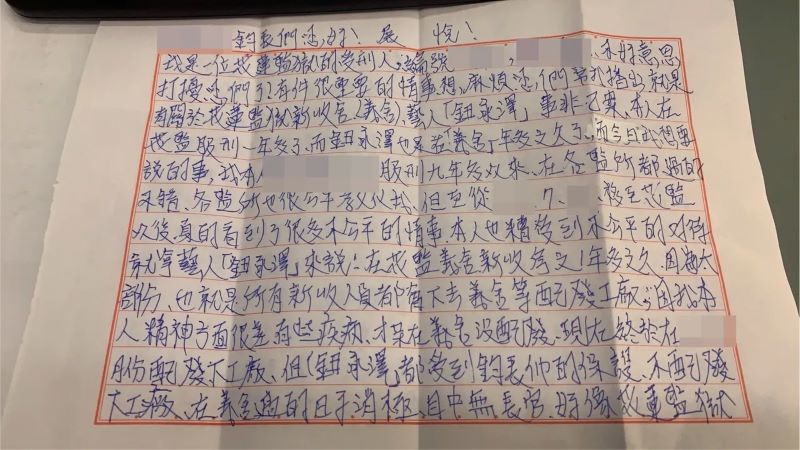 鈞長們您好! 展悅!
我是一位花蓮監獄的受刑人,編號 , 不好意思
打擾您們,引有件很重要的情事想麻煩您們幫忙揭出就是
有關於花蓮監獄新收舍(義舍)藝人「鈕承澤」事非之要、本人在
花監服刑一年多了、而鈕承澤也呆若「義舍」年多之久了、而今日我想要
說的事、我本 服刑九年多以來、在各監所都過的
不錯、各監所也很公平、孝义仪於、但至從 7. 移至花監
以後、真的看到了很多不公平的情事、本人也糟受到不公平的对待
就拿藝人「鈕承澤」來說:在花監義舍新收舍之1年多之久、因為大
部份、也就是所有新收人員都下去義舍等配發工廠、因我本
人精神方面很差有些疾病、才呆在義舍沒配發、現在終於在
月份配發下工廠、但「鈕承澤」都受到鈞長他的保護、不配發
下工廠、在義舍過的日子消極、目中無長官、好像花蓮監獄